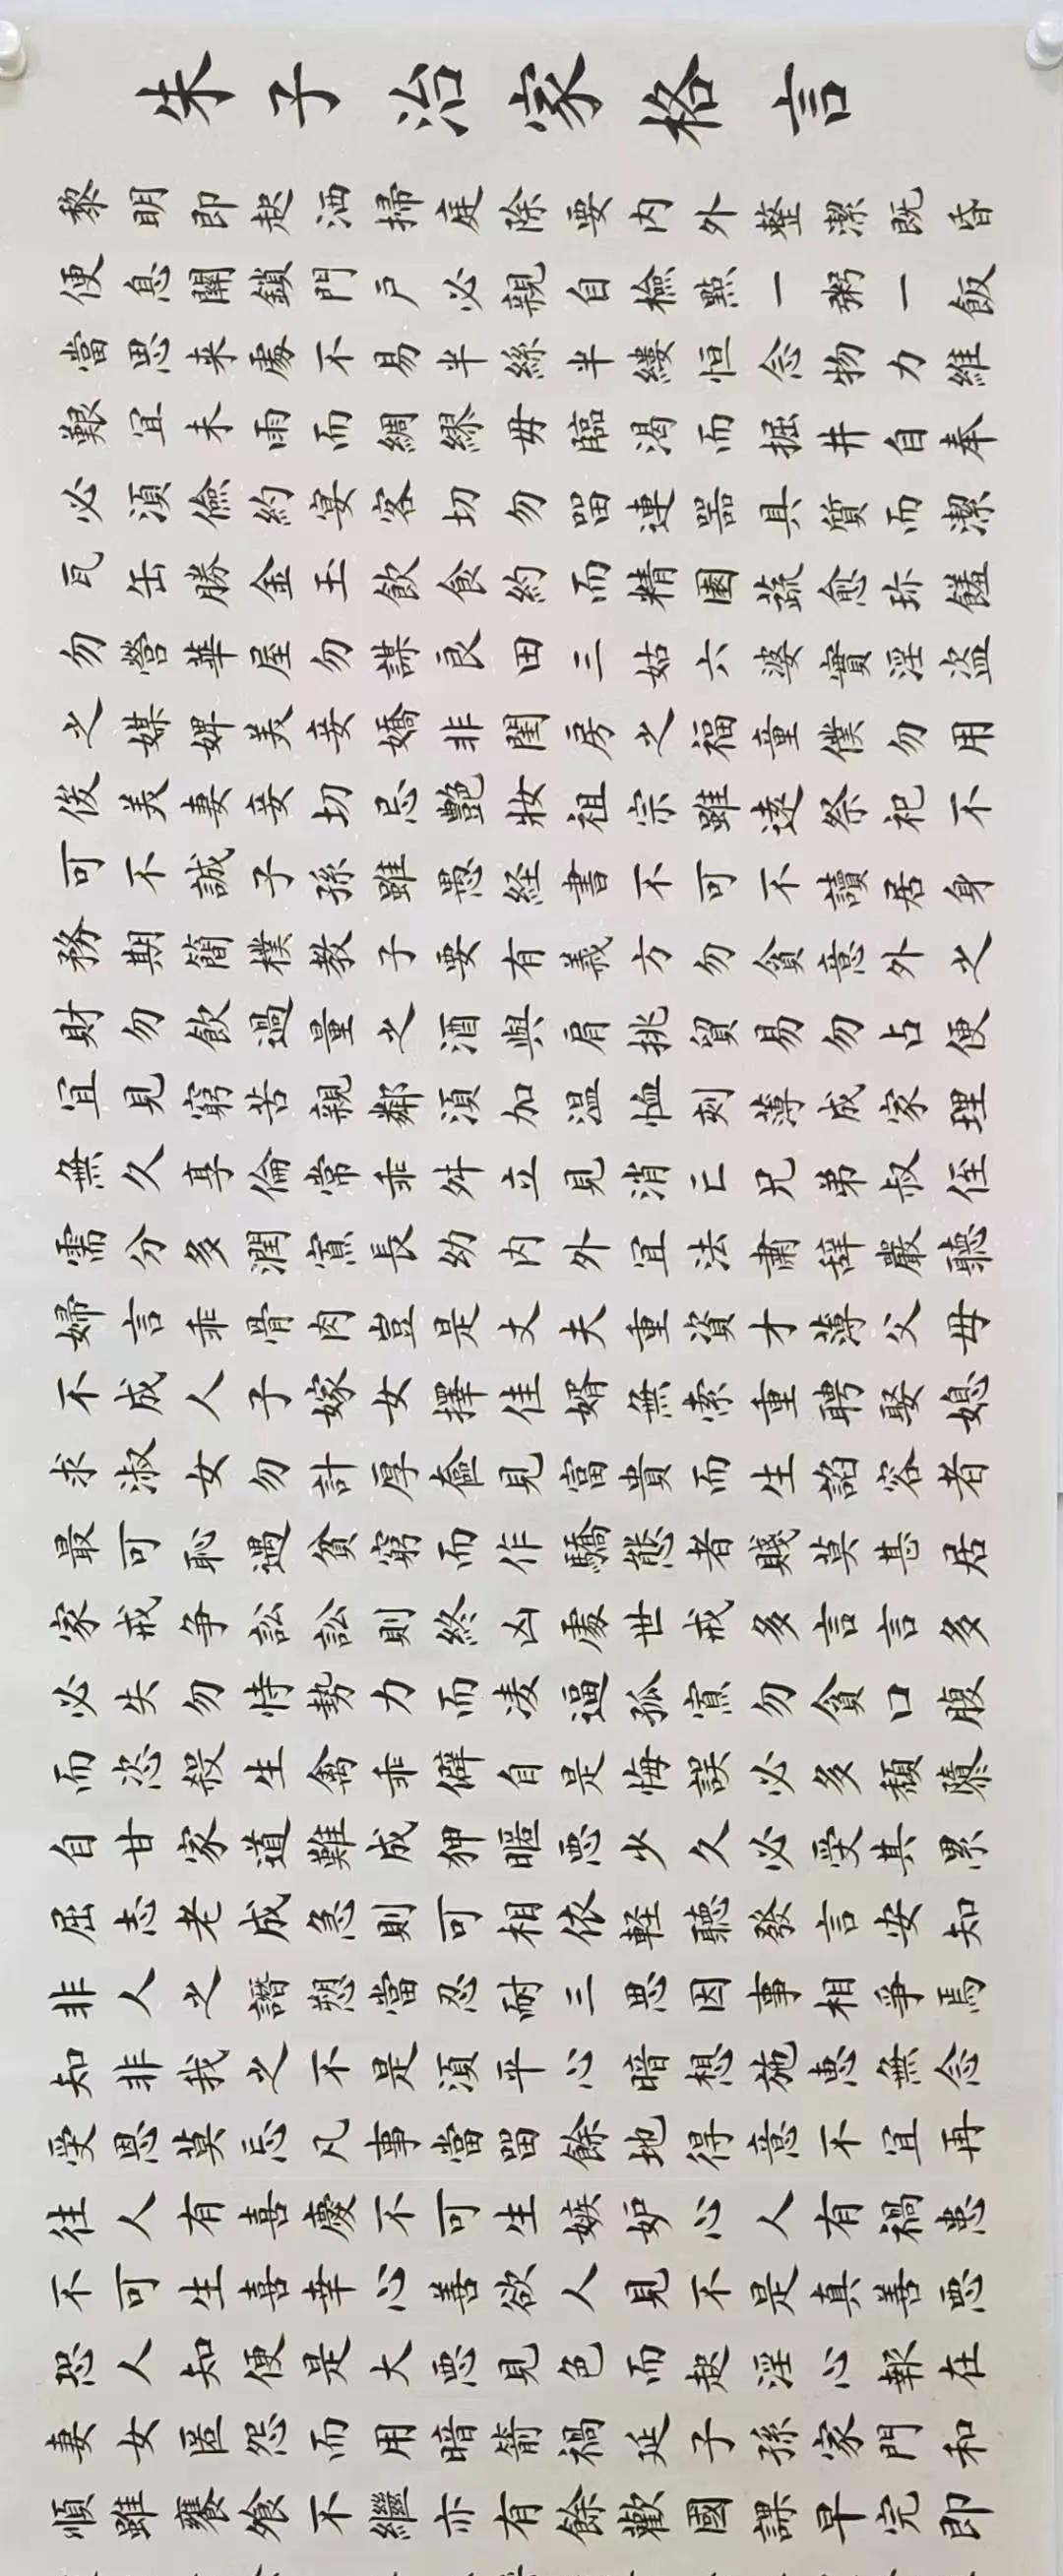 朱子治家格言
黎明即起洒掃庭除要内外整潔既昏
便息關鎖門户必親自檢點一粥一飯
當思来處不易半絲半縷恒念物力維
艱宜未雨而綢繆毋臨渴而掘井自奉
必須儉約宴客切勿留連器具質而潔
瓦缶勝金玉飲食約而精園蔬愈珍饈
勿營華屋勿謀良田三姑六婆實淫盗
之媒婢美妾嬌非閨房之福童僕勿用
俊美妻妾切忌艷妝祖宗雖遠祭祀不
可不誠子孫雖愚経書不可不讀居身
務期簡樸教子要有義方勿貪意外之
財勿飲過量之酒與肩挑貿易勿占便
宜見窮苦親鄰須加温恤刻薄成家理
無久享倫常乖舛立見消亡兄弟叔侄
需分多潤寡長幼内外宜法肅辞嚴聽
婦言乖骨肉豈是丈夫重資才薄父母
不成人子嫁女擇佳婿無索重聘娶媳
求淑女勿計厚奩見富貴而生諂容者
最可恥遇貧窮而作驕態者賤莫甚居
家戒争訟訟則終凶處世戒多言言多
必失勿恃勢力而凌逼孤寡勿貪口腹
而恣殺生禽乖僻自是悔誤必多頹隳
自甘家道難成狎暱悪少久必受其累
屈志老成急則可相依軽聽發言安知
非人之譖愬當忍耐三思因事相爭焉
知非我之不是須平心暗想施恵無念
受恩莫忘凡事當留餘地得意不宜再
往人有喜慶不可生嫉妒心人有禍患
不可生喜幸心善欲人見不是真善悪
恐人知便是大悪見色而起淫心報在
妻女匿怨而用暗箭禍延子孫家門和
順雖饔飧不繼亦有餘歡國課早完即